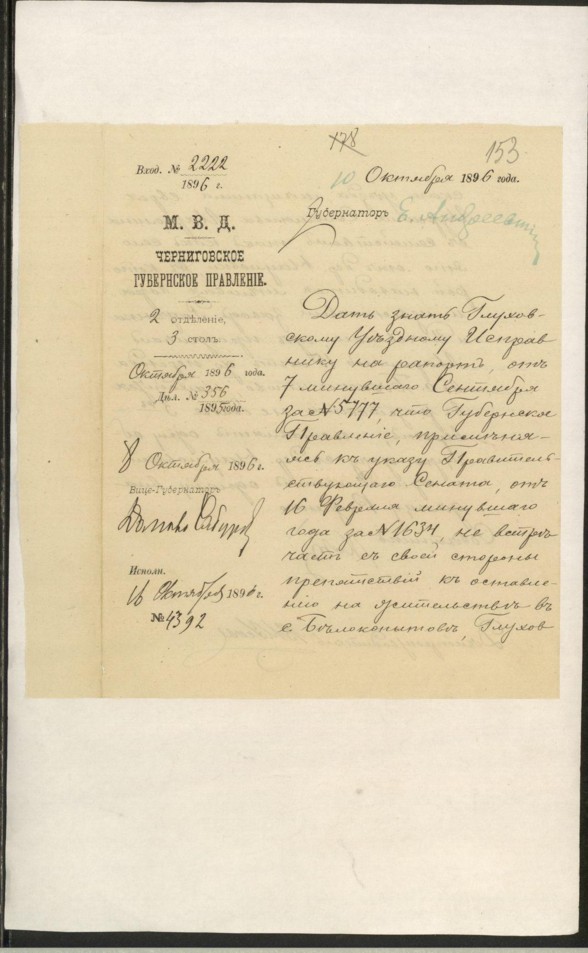 178
153
Вход. № 2222
1896 г.
10 Октября 1896 года.
Губернаторъ Е. Андреевскій
М. В. Д.
ЧЕРНИГОВСКОЕ
ГУБЕРНСКОЕ ПРАВЛЕНІЕ.
2 отдѣленіе,
3 столъ.
Октября 1896 года.
Дѣл. № 356
1895 года.
8 Октября 1896 г.
Вице-Губернаторъ
Исполн.
16 Октября 1896 г.
№ 4392
Дать знать Глухов-
скому Уѣздному Исправ
нику на рапортъ, отъ
7 минувшаго Сентября
за № 5777, что Губернское
Правленіе, примѣня-
ясь къ указу Правитель-
ствующаго Сената, отъ
16 Февраля минувшаго
года за № 1634, не встрѣ-
чаетъ съ своей стороны
препятствій къ оставле-
нію на жительствѣ въ
с. Бѣлокопытовѣ, Глухов